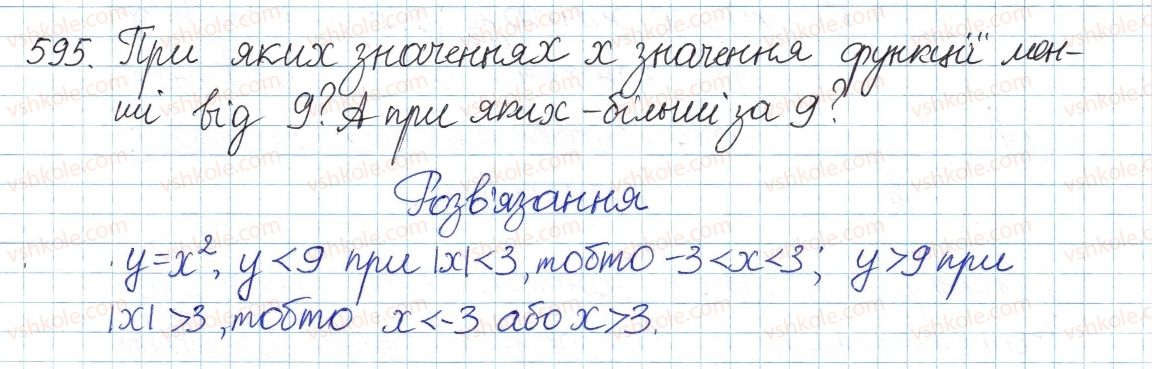 595. При яких значеннях x значення функції мен-
ші від 9? А при яких – більші за 9?
Розв'язання
y = x², y < 9 при |x| < 3, тобто -3 < x < 3; y > 9 при
|x| > 3, тобто x < -3 або x > 3.